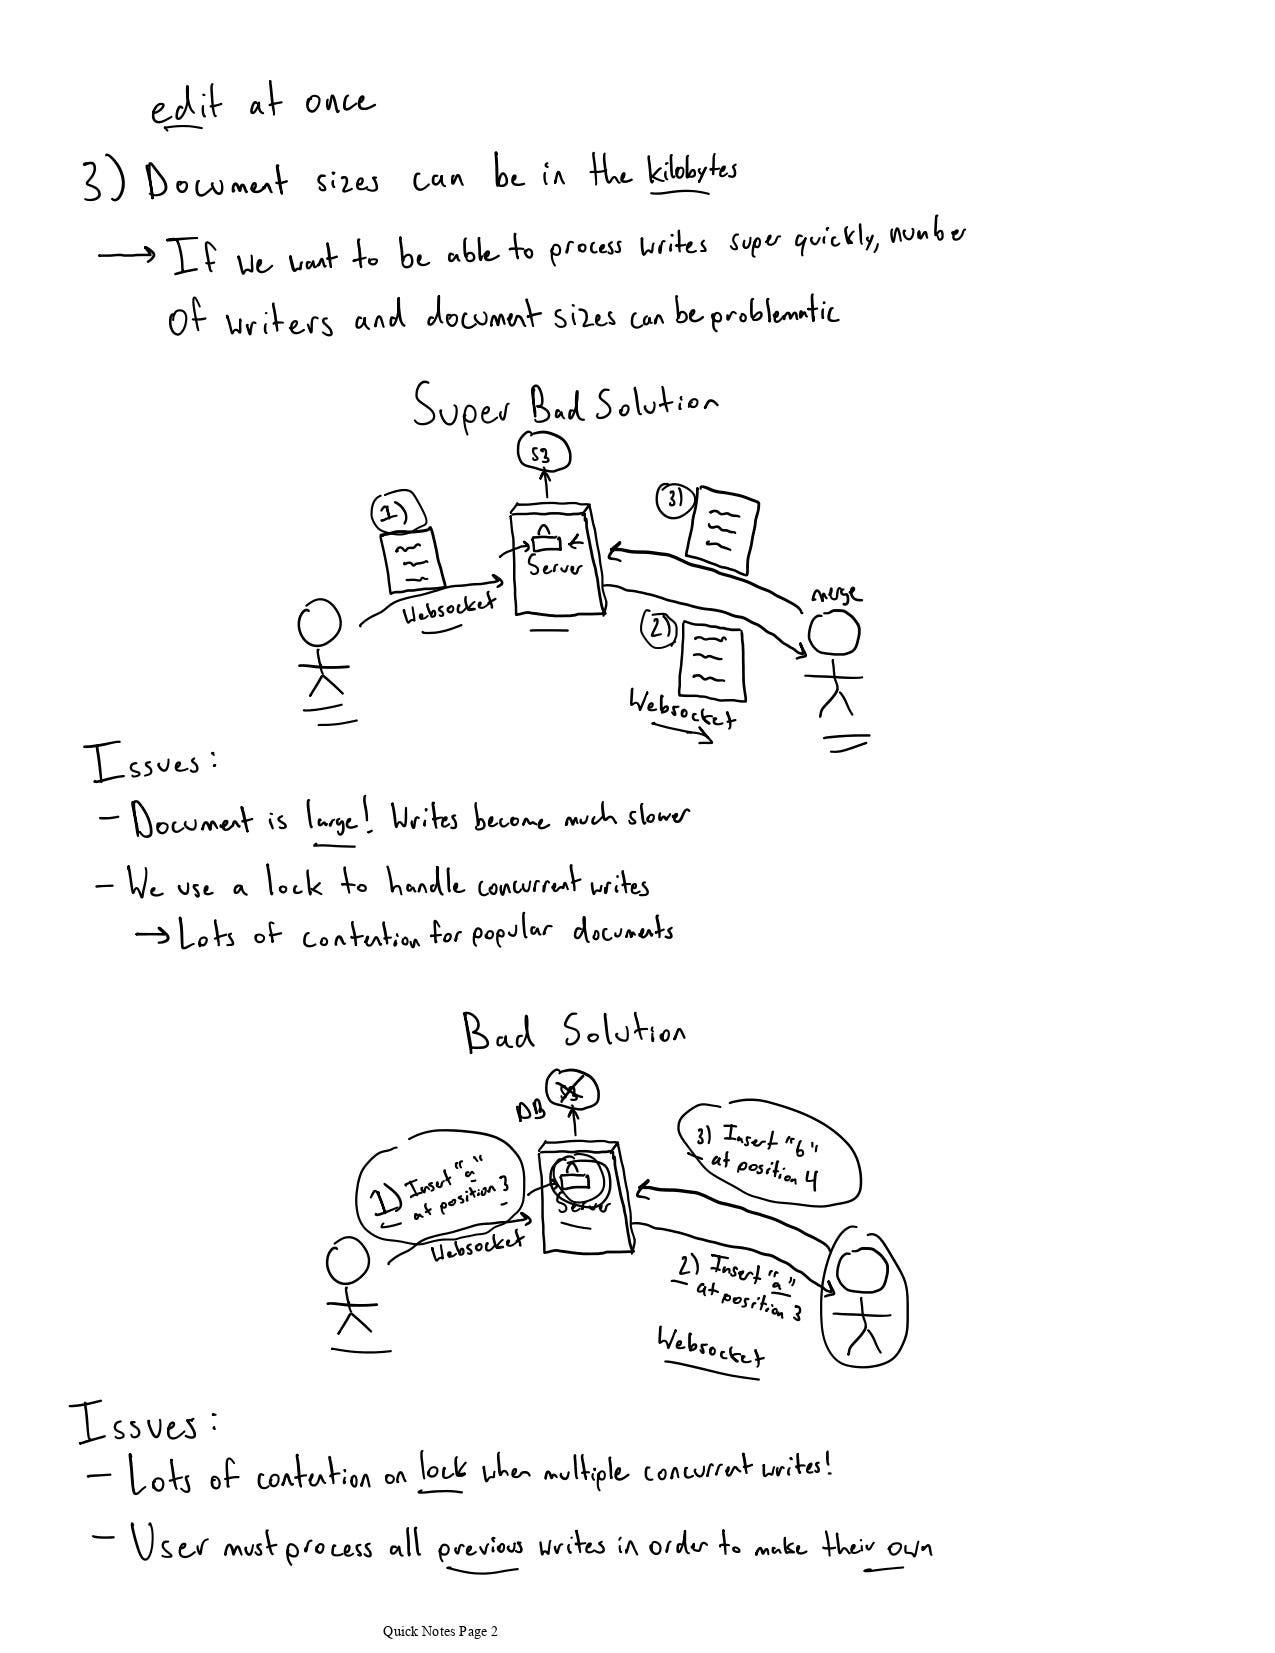 edit at once
3) Document sizes can be in the kilobytes
→ If we want to be able to process writes super quickly, number
of writers and document sizes can be problematic
Super Bad Solution
S3
1)
3)
Server
Websocket
merge
2)
Websocket
Issues:
- Document is large! Writes become much slower
- We use a lock to handle concurrent writes
→ Lots of contention for popular documents
Bad Solution
DB
3) Insert "b"
at position 4
1) Insert "a"
at position 3
Server
Websocket
2) Insert "a"
at position 3
Websocket
Issues:
- Lots of contention on lock when multiple concurrent writes!
- User must process all previous writes in order to make their own
Quick Notes Page 2